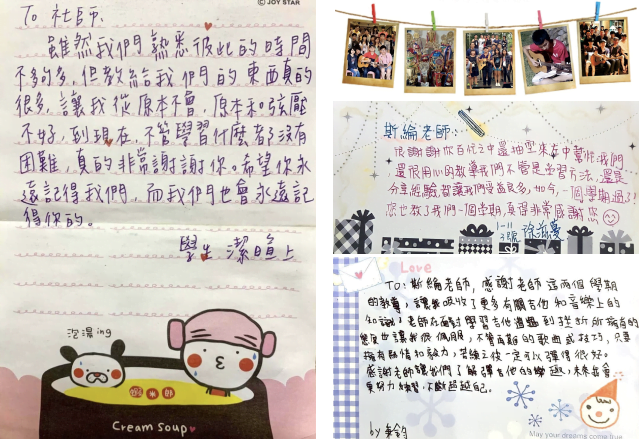 © JOY STAR
To 社師:
雖然我們熟悉彼此的時間
不夠多,但教給我們的東西真的
很多,讓我從原本不會,原本和弦壓
不好,到現在,不管學習什麼都沒有
困難,真的非常謝謝你。希望你永
遠記得我們,而我們也會永遠記
得你的。
學生 潔暄上
泡湯ing
Cream Soup
斯綸老師:
很謝謝你百忙之中還抽空來在中幫忙我們
還很用心的教導我們不管是學習方法,還是
分享經驗,都讓我們受益良多,如今,一個學期過了!
您也教了我們一個學期,真得非常感謝您
1-11
3號
Love
TO:斯綸老師,感謝老師這兩個學期
的教導,讓我吸收了更多有關吉他和音樂上的
知識,老師在面對學習吉他遇到挫折所擁有的
態度也讓我很佩服,不管再難的歌曲或技巧,只要
擁有熱情和毅力,苦練之後一定可以彈得很好。
感謝老師讓我們了解彈吉他的樂趣,未來我會
更努力練習,不斷超越自己。
by
May your dreams come true